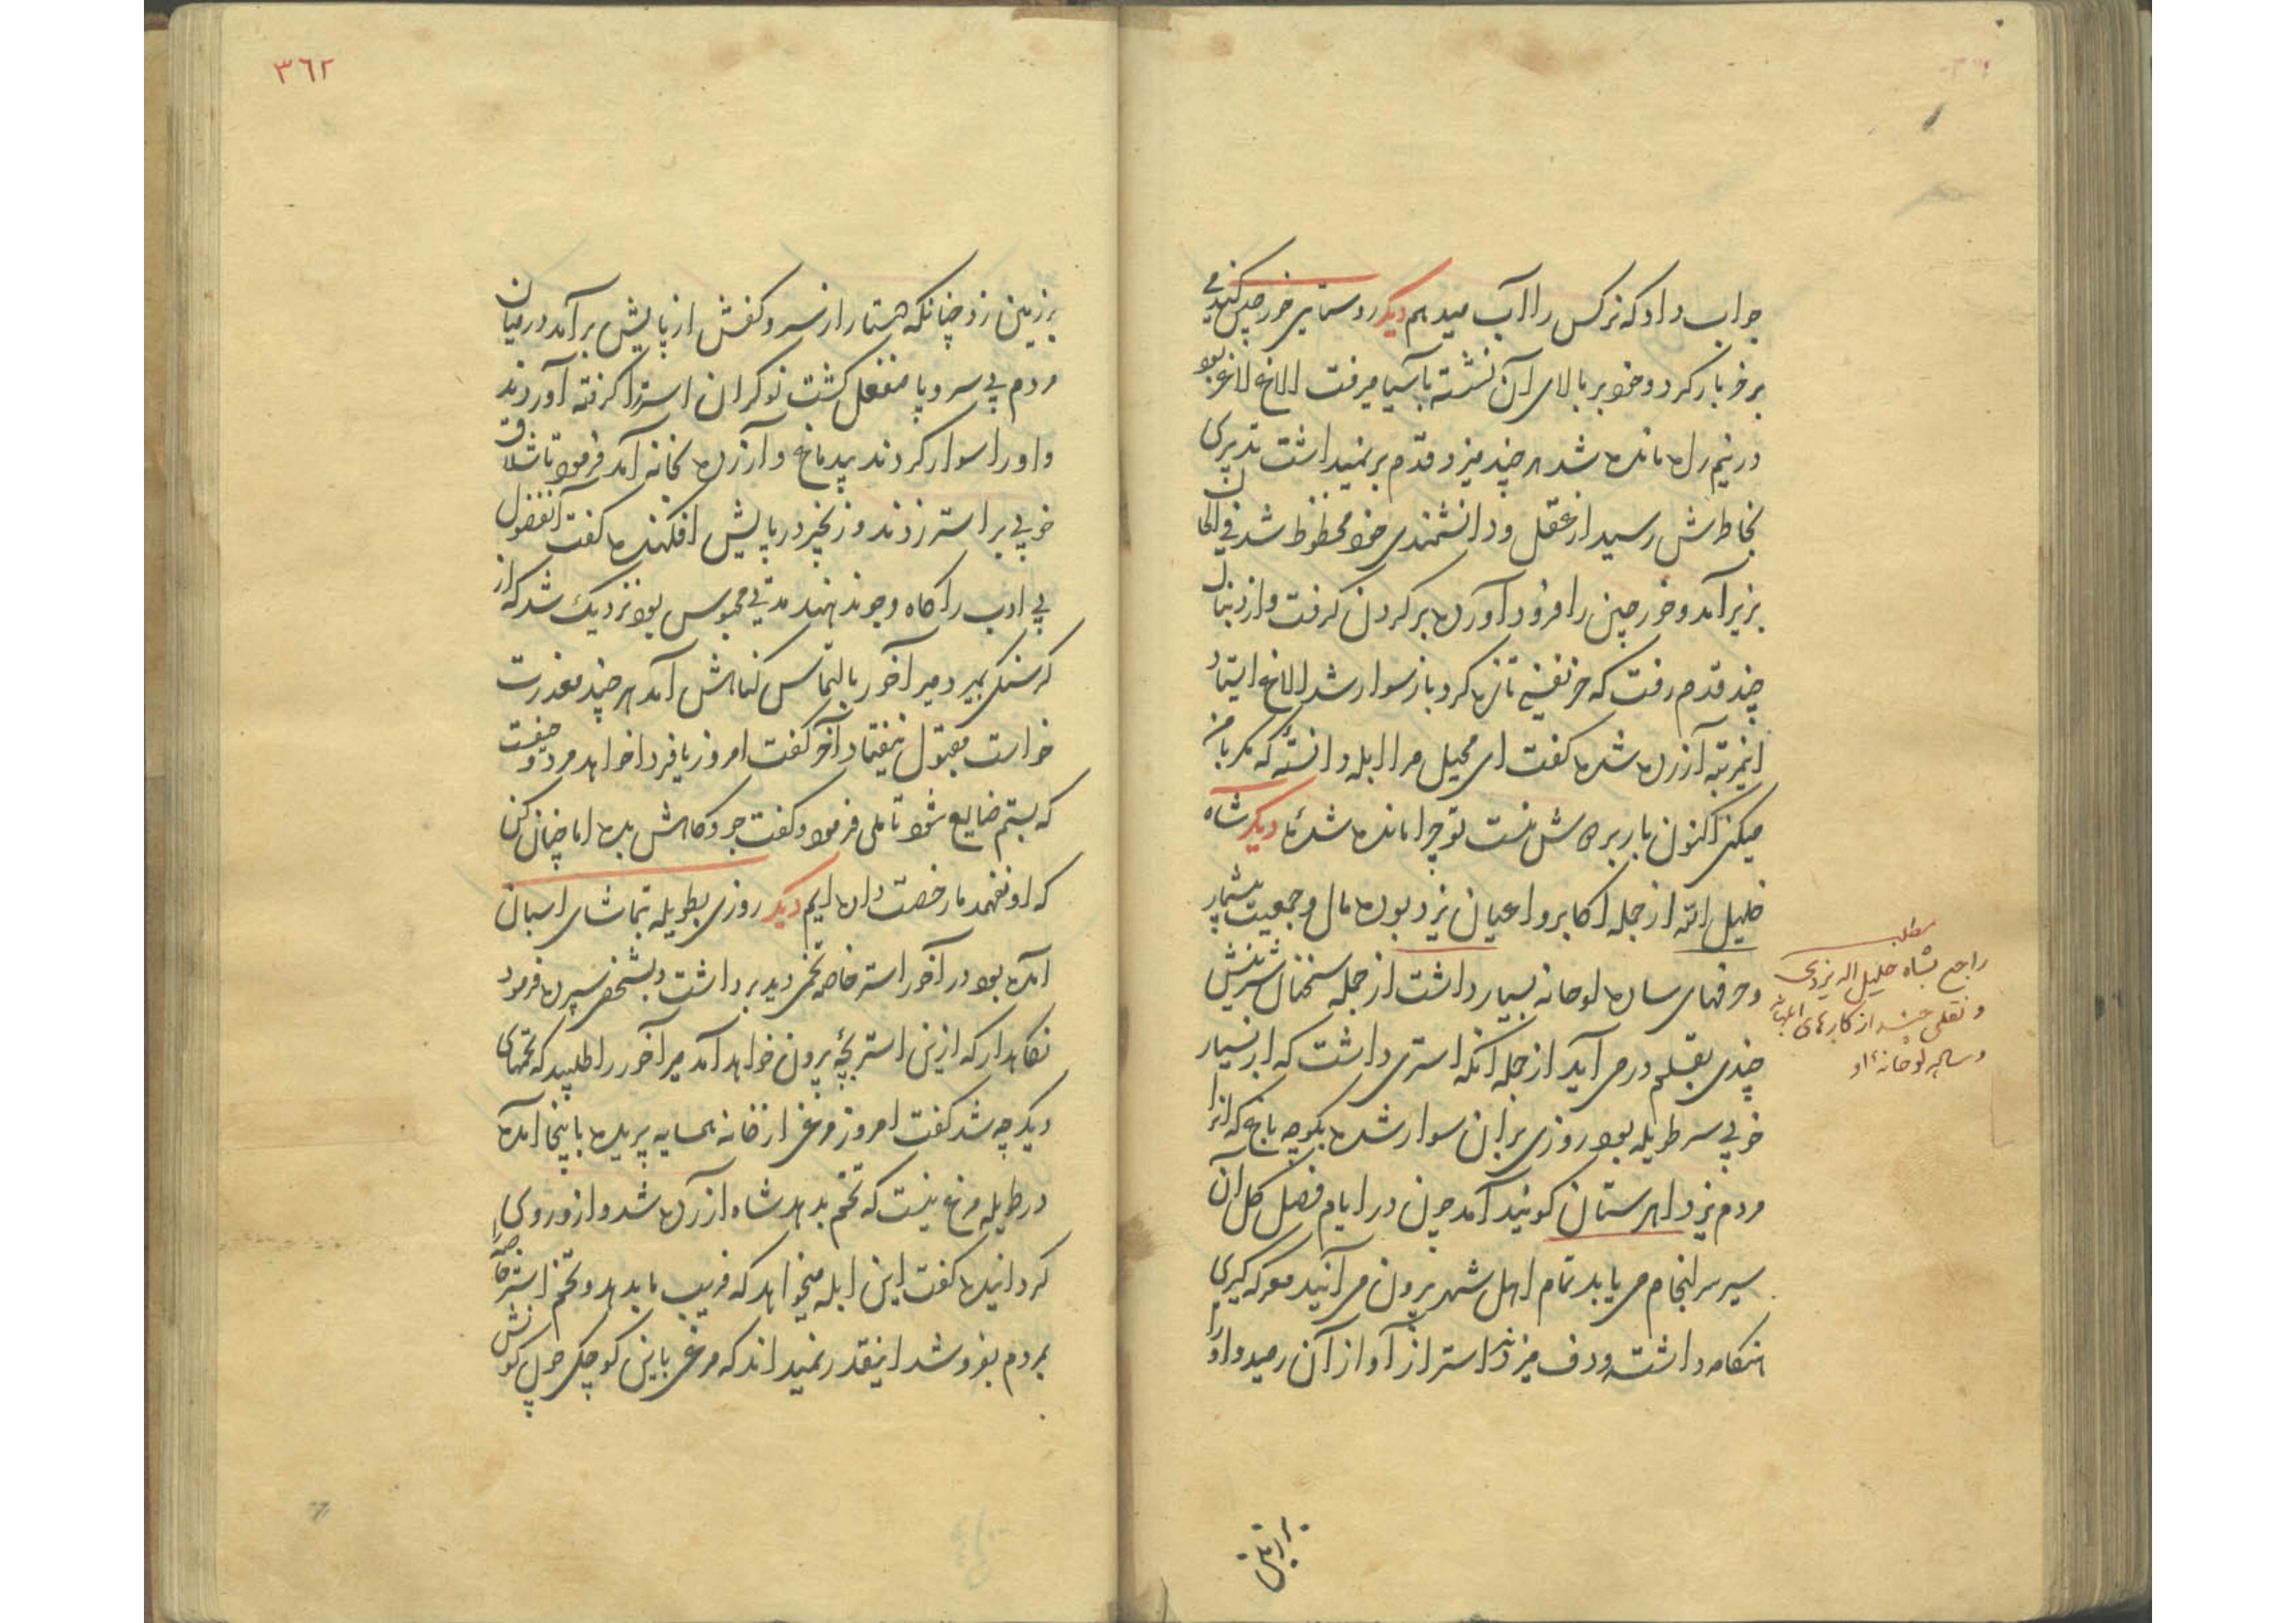 جواب داد که نرکس را آب میدهم دیکر روستایی خورجین کندمی
بر خر بار کرد و خود بر بالای آن نشسته بآسیا میرفت الاغ لاغر بود
در نیم راه مانده شد هر چند میزد قدم بر نمیداشت تدبیری
بخاطرش رسید از عقل و دانشمندی خود محظوظ شد فی الحال
بزیر آمد و خورجین را فرود آورده بر کردن کرفت و از دنبال
چند قدم رفت که خر نفسی تازه کرد باز سوار شد الاغ ایستاد
اینمرتبه آزرده شده کفت ای محیل مرا ابله دانستهٔ که مکر با من
میکنی اکنون بار بر دوش منست تو چرا مانده شدهٔ دیکر شاه
خلیل الله از جمله اکابر و اعیان یزد بوده مال و جمعیت بیشمار
و حرفهای ساده لوحانه بسیار داشت از جمله سخنان شیرینش
چندی بقلم در می آید از جمله آنکه استری داشت که از بسیار
خوبی سر طویله بود روزی بر آن سوار شده بکوچه باغ که آنرا
مردم یزد اهرستان کویند آمد چون در ایام فصل کل آن
سیر سرانجام می یابد تمام اهل شهر بیرون می آیند معرکه کیری
هنکامه داشت و دف میزد استر از آواز آن رمید و او را
بر زمین
مطلب
راجع بشاه خلیل اله یزدی
و نقلی چند از کارهای ابلهانه
و ساده لوحانهٔ او
٣٦٢
بر زمین زد چنانکه دستار از سر و کفش از پایش بر آمد در میان
مردم بی سر و پا منفعل کشت نوکران استر را کرفته آوردند
و او را سوار کردند بیدماغ و آزرده بخانه آمد فرمود تا شلاق
خوبی بر استر زدند و زنجیر در پایش افکنده کفت آنفضول
بی ادب را کاه و جو ندهند مدتی محبوس بود نزدیک شد که از
کرسنکی بمیرد میر آخور بالتماس کناهش آمد هر چند معذرت
خواست مقبول نیفتاد آخر کفت امروز یا فردا خواهد مرد و حیفست
که بستم ضایع شود تاملی فرمود و کفت جو و کاهش بده اما چنان کن
که او نفهمد ما رخصت داده ایم دیکر روزی بطویله بتماشای اسبان
آمده بود در آخور استر خاصه تخمی دید برداشت و بشخصی سپرده فرمود
نکاهدار که ازین استر بچهٔ بیرون خواهد آمد میر آخور را طلبید که تخمهای
دیکر چه شد کفت امروز مرغی از خانه همسایه پریده باینجا آمده
در طویله مرغ نیست که تخم بدهد شاه آزرده شد و از و روی
کردانیده کفت این ابله میخواهد که فریب ما بدهد و تخم استر خاصه را
بمردم بفروشد اینقدر نمیداند که مرغی باین کوچکی چون کونش